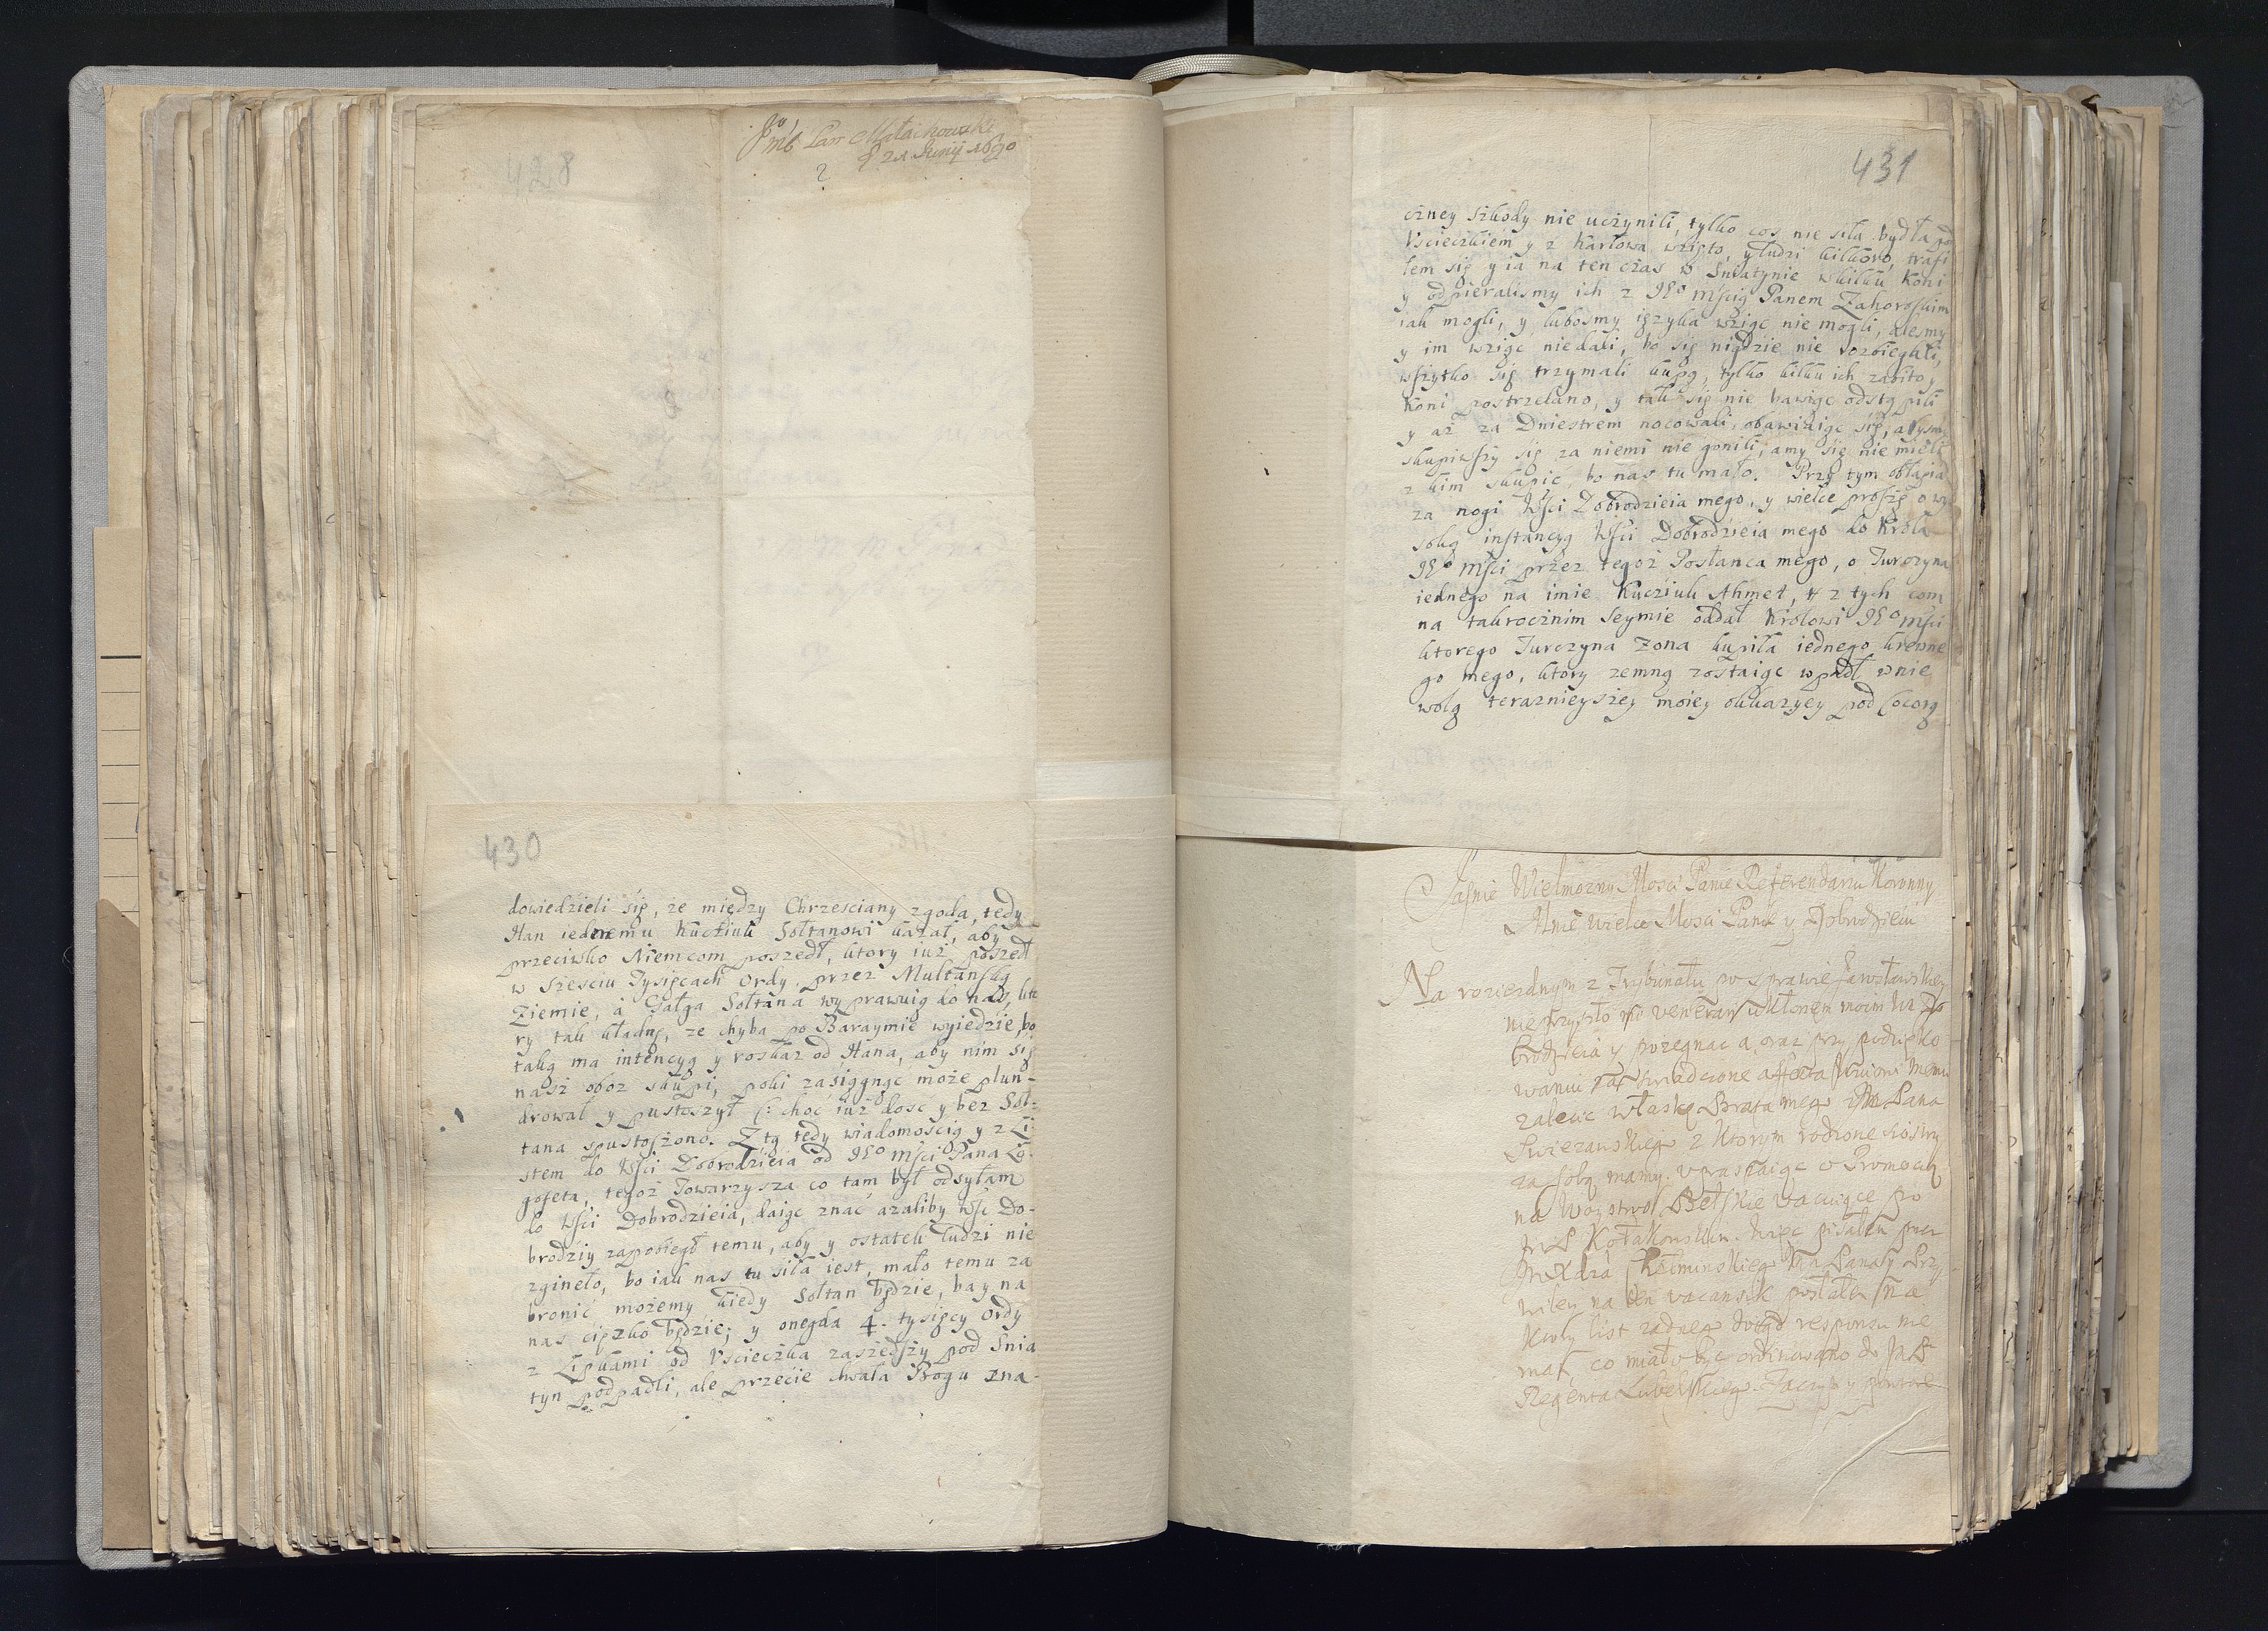 428
Pan Małachowski
21 Junij 1690
430
dowiedzieli się, że między Chrzesciany zgoda, tedy
Han iednemu Kucziuk Sołtanowi kazał, aby
przeciwko Niemcom poszedł, ktory iuż poszedł
w sześciu Tysięcach Ordy, przez Multanską
Ziemie, á Gałga Sołtana wyprawuią do nas, kto
ry tak kładnę, że chyba po Baraymie wyiedzie, bo
taką ma intencyą y roskaz od Hana, aby nim się
nasz oboz skupi, poki zasięgnąć może plun-
drował y pustoszył (: choć iuż dość y bez Soł-
tana spustoszono. Z tą tedy wiadomoscią y z Li-
stem do WSci Dobrodzieia od Je° Msci Pana Lo-
gofeta, tegoż Towarzysza co tam był odsyłam
do WSci Dobrodzieia, daiąc znać azaliby WSc Do-
brodziy zapobiegł temu, aby y ostatek ludzi nie
zgineło, bo iak nas tu siła iest, mało temu za
bronić możemy kiedy Sołtan będzie, ba y na
nas cięzko będzie; y onegda 4. tysięcy Ordy
z Lipkami od Uscieczka zaszedszy pod Snia
tyn podpadli, ale przecie chwała Bogu zna-
431
czney szkody nie uczynili, tylko cos nie siła bydła pod
Uscieczkiem y z Karłowa wzięto, y ludzi kilkoro, trafi
łem się y ia na ten czas w Sniatynie w kilku koni
y odpieralismy ich z Je° Mscią Panem Zahoroskim
iak mogli, y lubosmy ięzyka wziąc nie mogli, alesmy
y im wziąc niedali, bo się nigdzie nie rozbiegali,
wszytko się trzymali kupą, tylko kilku ich zabito y
koni postrzelano, y tak się nie bawiąc odstąpili
y aż za Dniestrem nocowali, obawiaiąc się, abysmy
skupiwszy się za niemi nie gonili, amy się nie mieli
z kim skupic, bo nas tu mało. Przy tym obłapia
za nogi WSci Dobrodzieia mego, y wielce proszę o wy
soką instancyą WSci Dobrodzieia mego do Krola
Je° Msci przez tegoż Posłanca mego, o Turczyna
iednego na imie Kucziuk Ahmet, z tych com
na takrocznim Seymie oddał Krolowi Je° Msci
ktorego Turczyna Zona kupiła iednego krewne
go mego, ktory zemną zostaiąc wpadł w nie
wolą terazniey­szey moiey okkazyey pod Cocorą
Jasnie Wielmożny Mosci Panie Referendariu Koronny
Mnie wielce Mosci Panie y Dobrodzieiu
Na rozieznym z Trybunału po sprawie Jarosławskiey
nie przyszło mi venerari ukłonem moim W Do
brodzieia y pozegnac a oraz przy podzięko
waniu za swiadczone affecta
zalecic w łaskę Brata mego Pana
Swiezawskiego z ktorym rodzone siostry
za sobą mamy, upraszaiąc o Promocyą
na Woystwo Bełskie vacuiące po
Kołakowskim
Pana
na ten vacans posłałem na
Kroly list zadnego dotąd responsu nie
mam, co miało byc ordinowano do
Regenta Lubelskiego. Zaczym y powtore